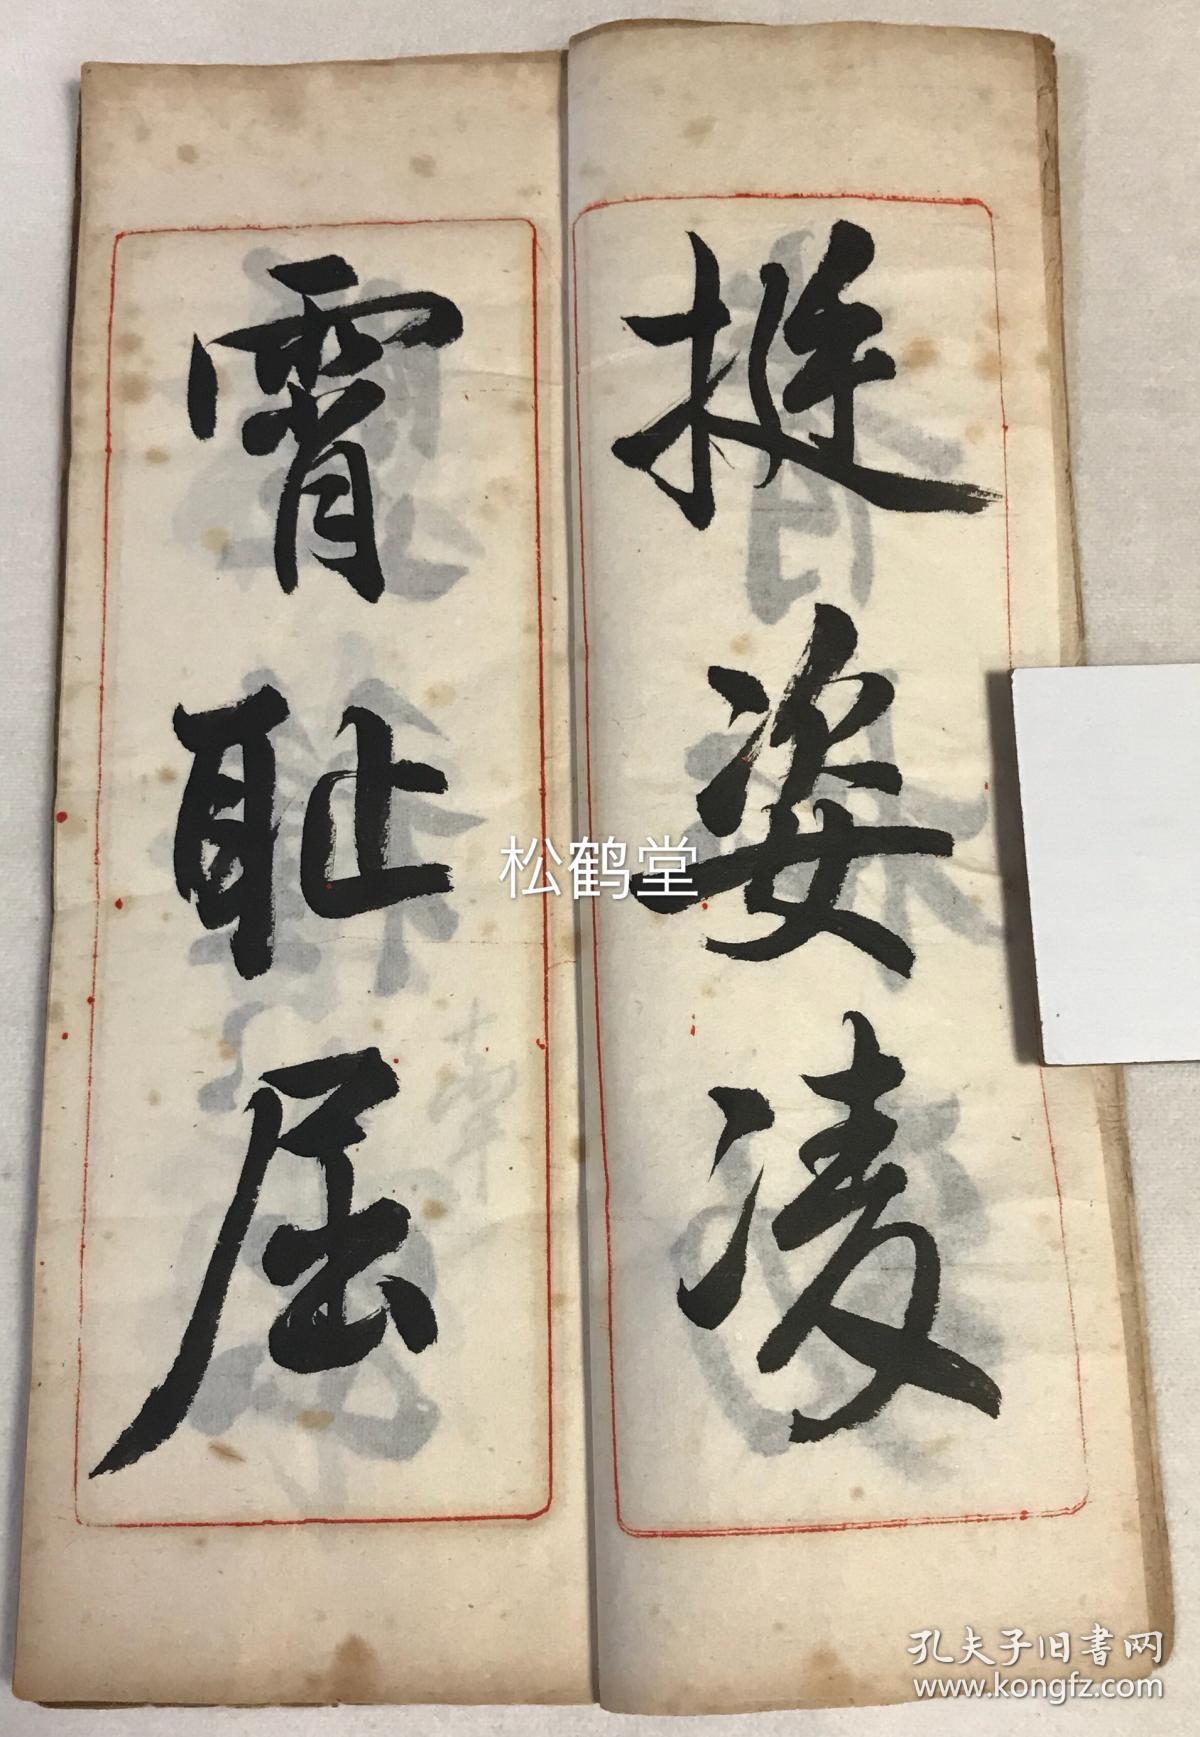 挺姿凌
霄耻屈
松鹤堂
孔夫子旧书网
www.kongfz.com